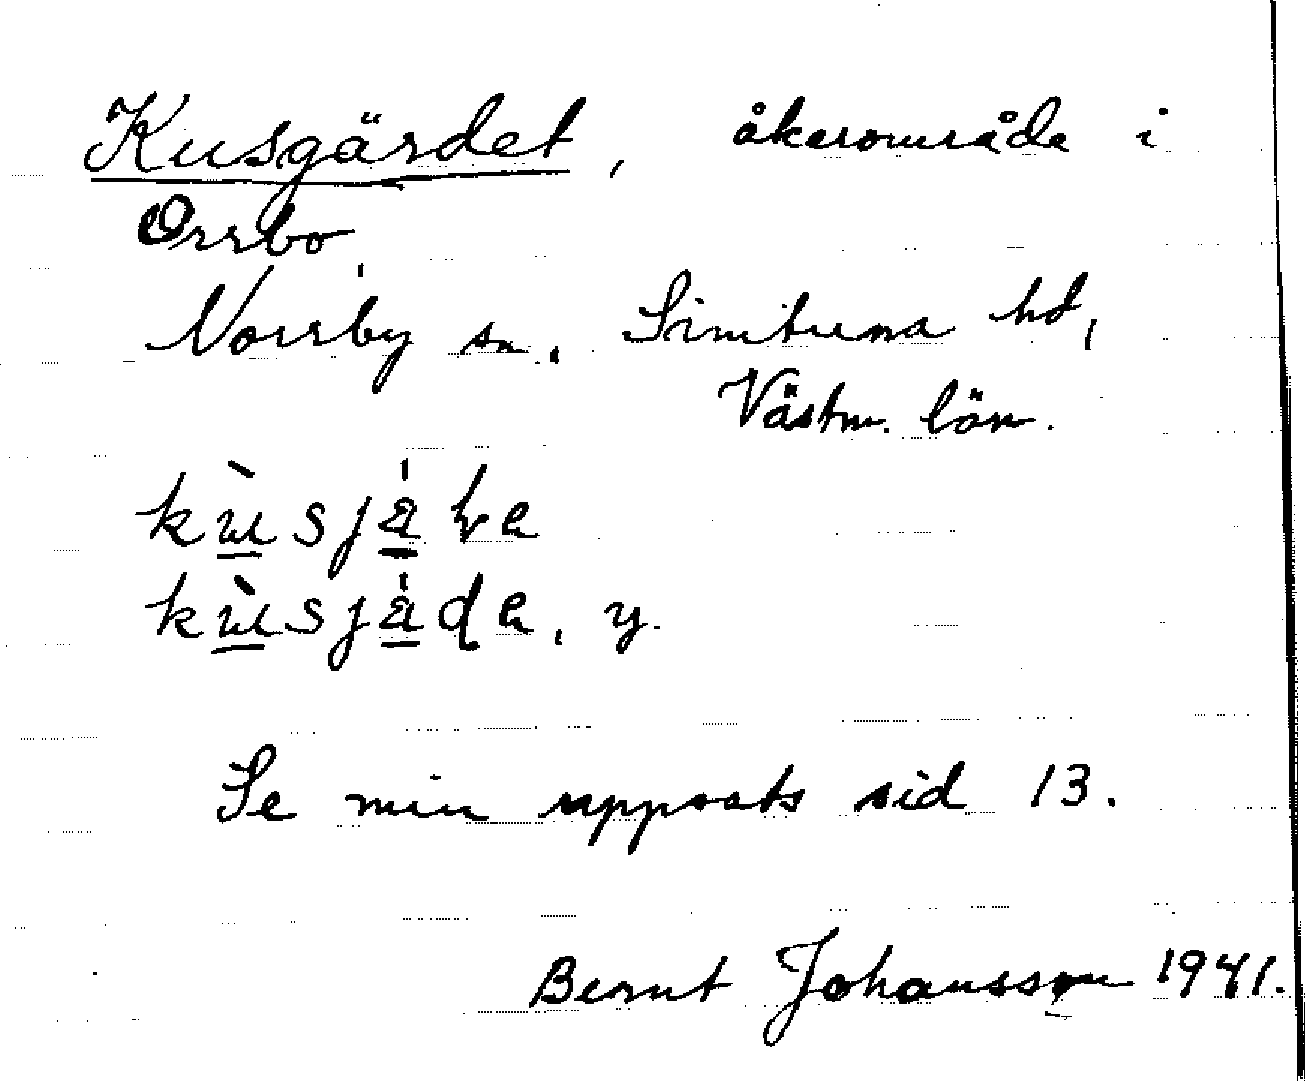 Kusgärdet, åkerområde i
Orrbo,
Norrby sn. Simtuna hd,
Västm. län.
y.
Se min uppsats sid 13.
Bernt Johansson 1941.